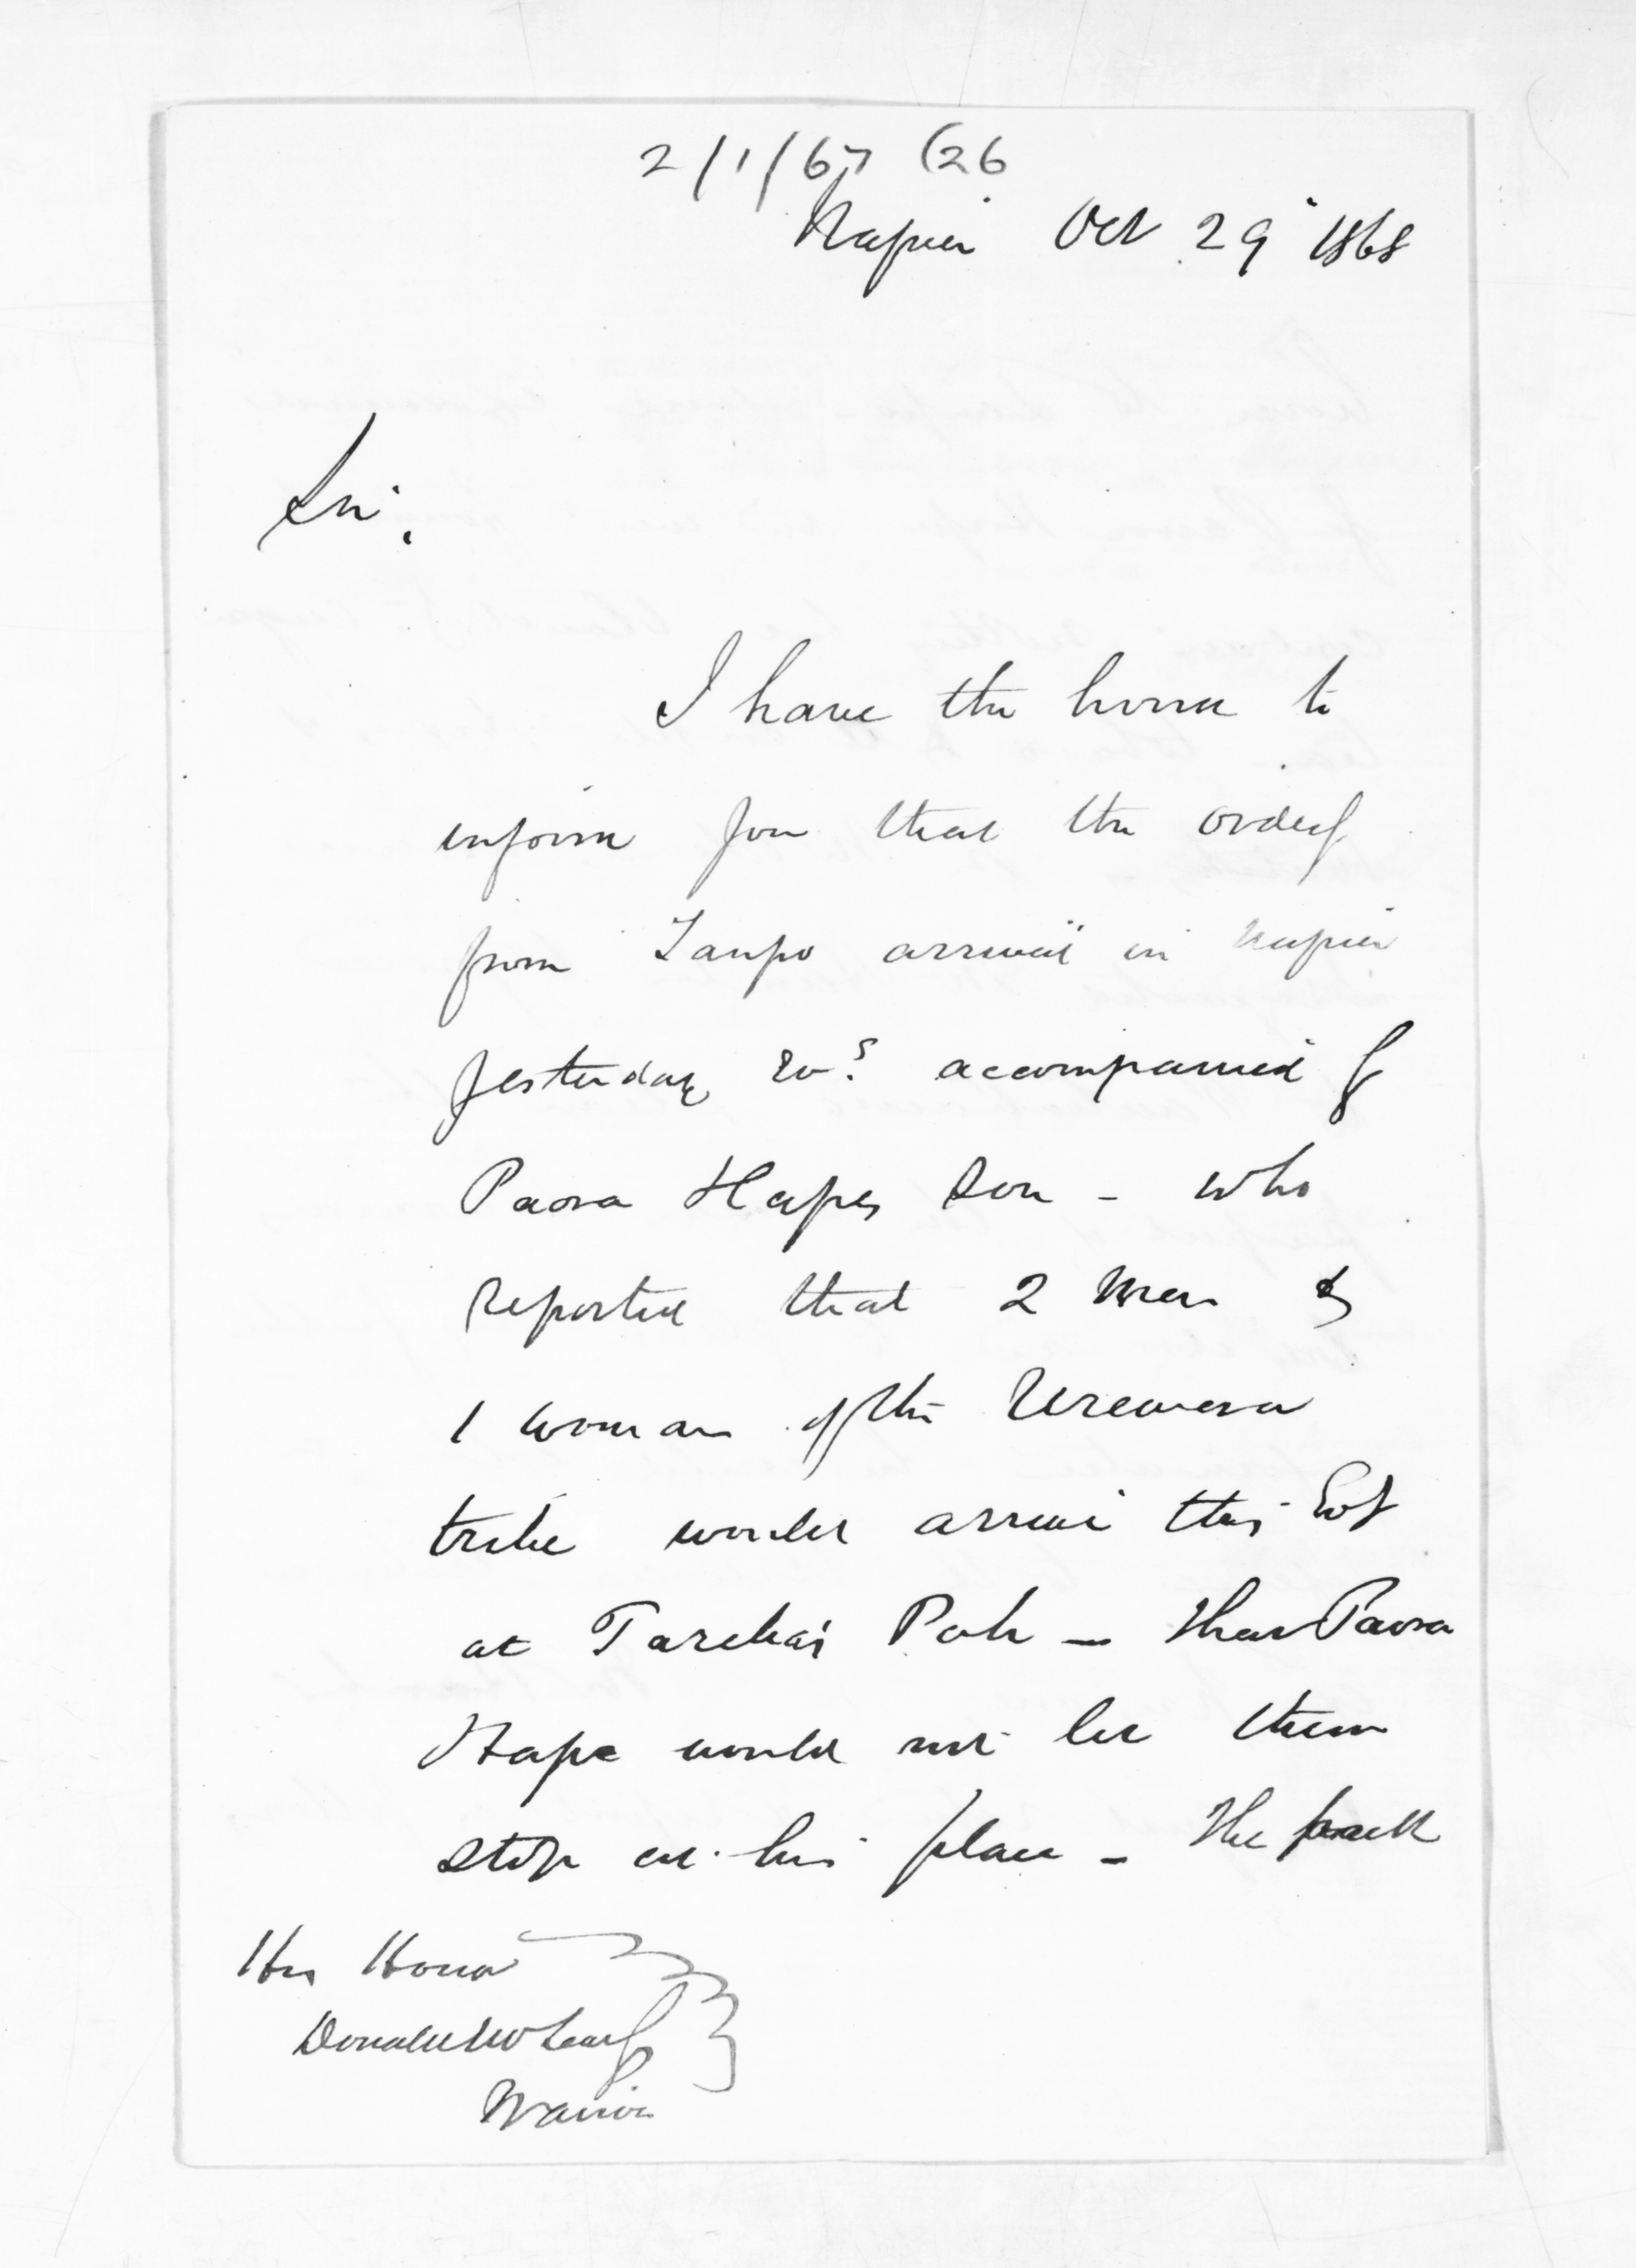 2/1/67 (26
Napier Oct 29 1868
Sir,
I have the honor to
inform you that the orderly
from Taupo arrived in Napier
yesterday Evg accompanied by
Paora Hapes son - who
reported that 2 men &
1 woman of the Urewera
tribe would arrive this Evg
at Tareha's Pah - that Paora
Hape would not let them
stop at his place - the
His Honor
Donald McLean
Wairoa